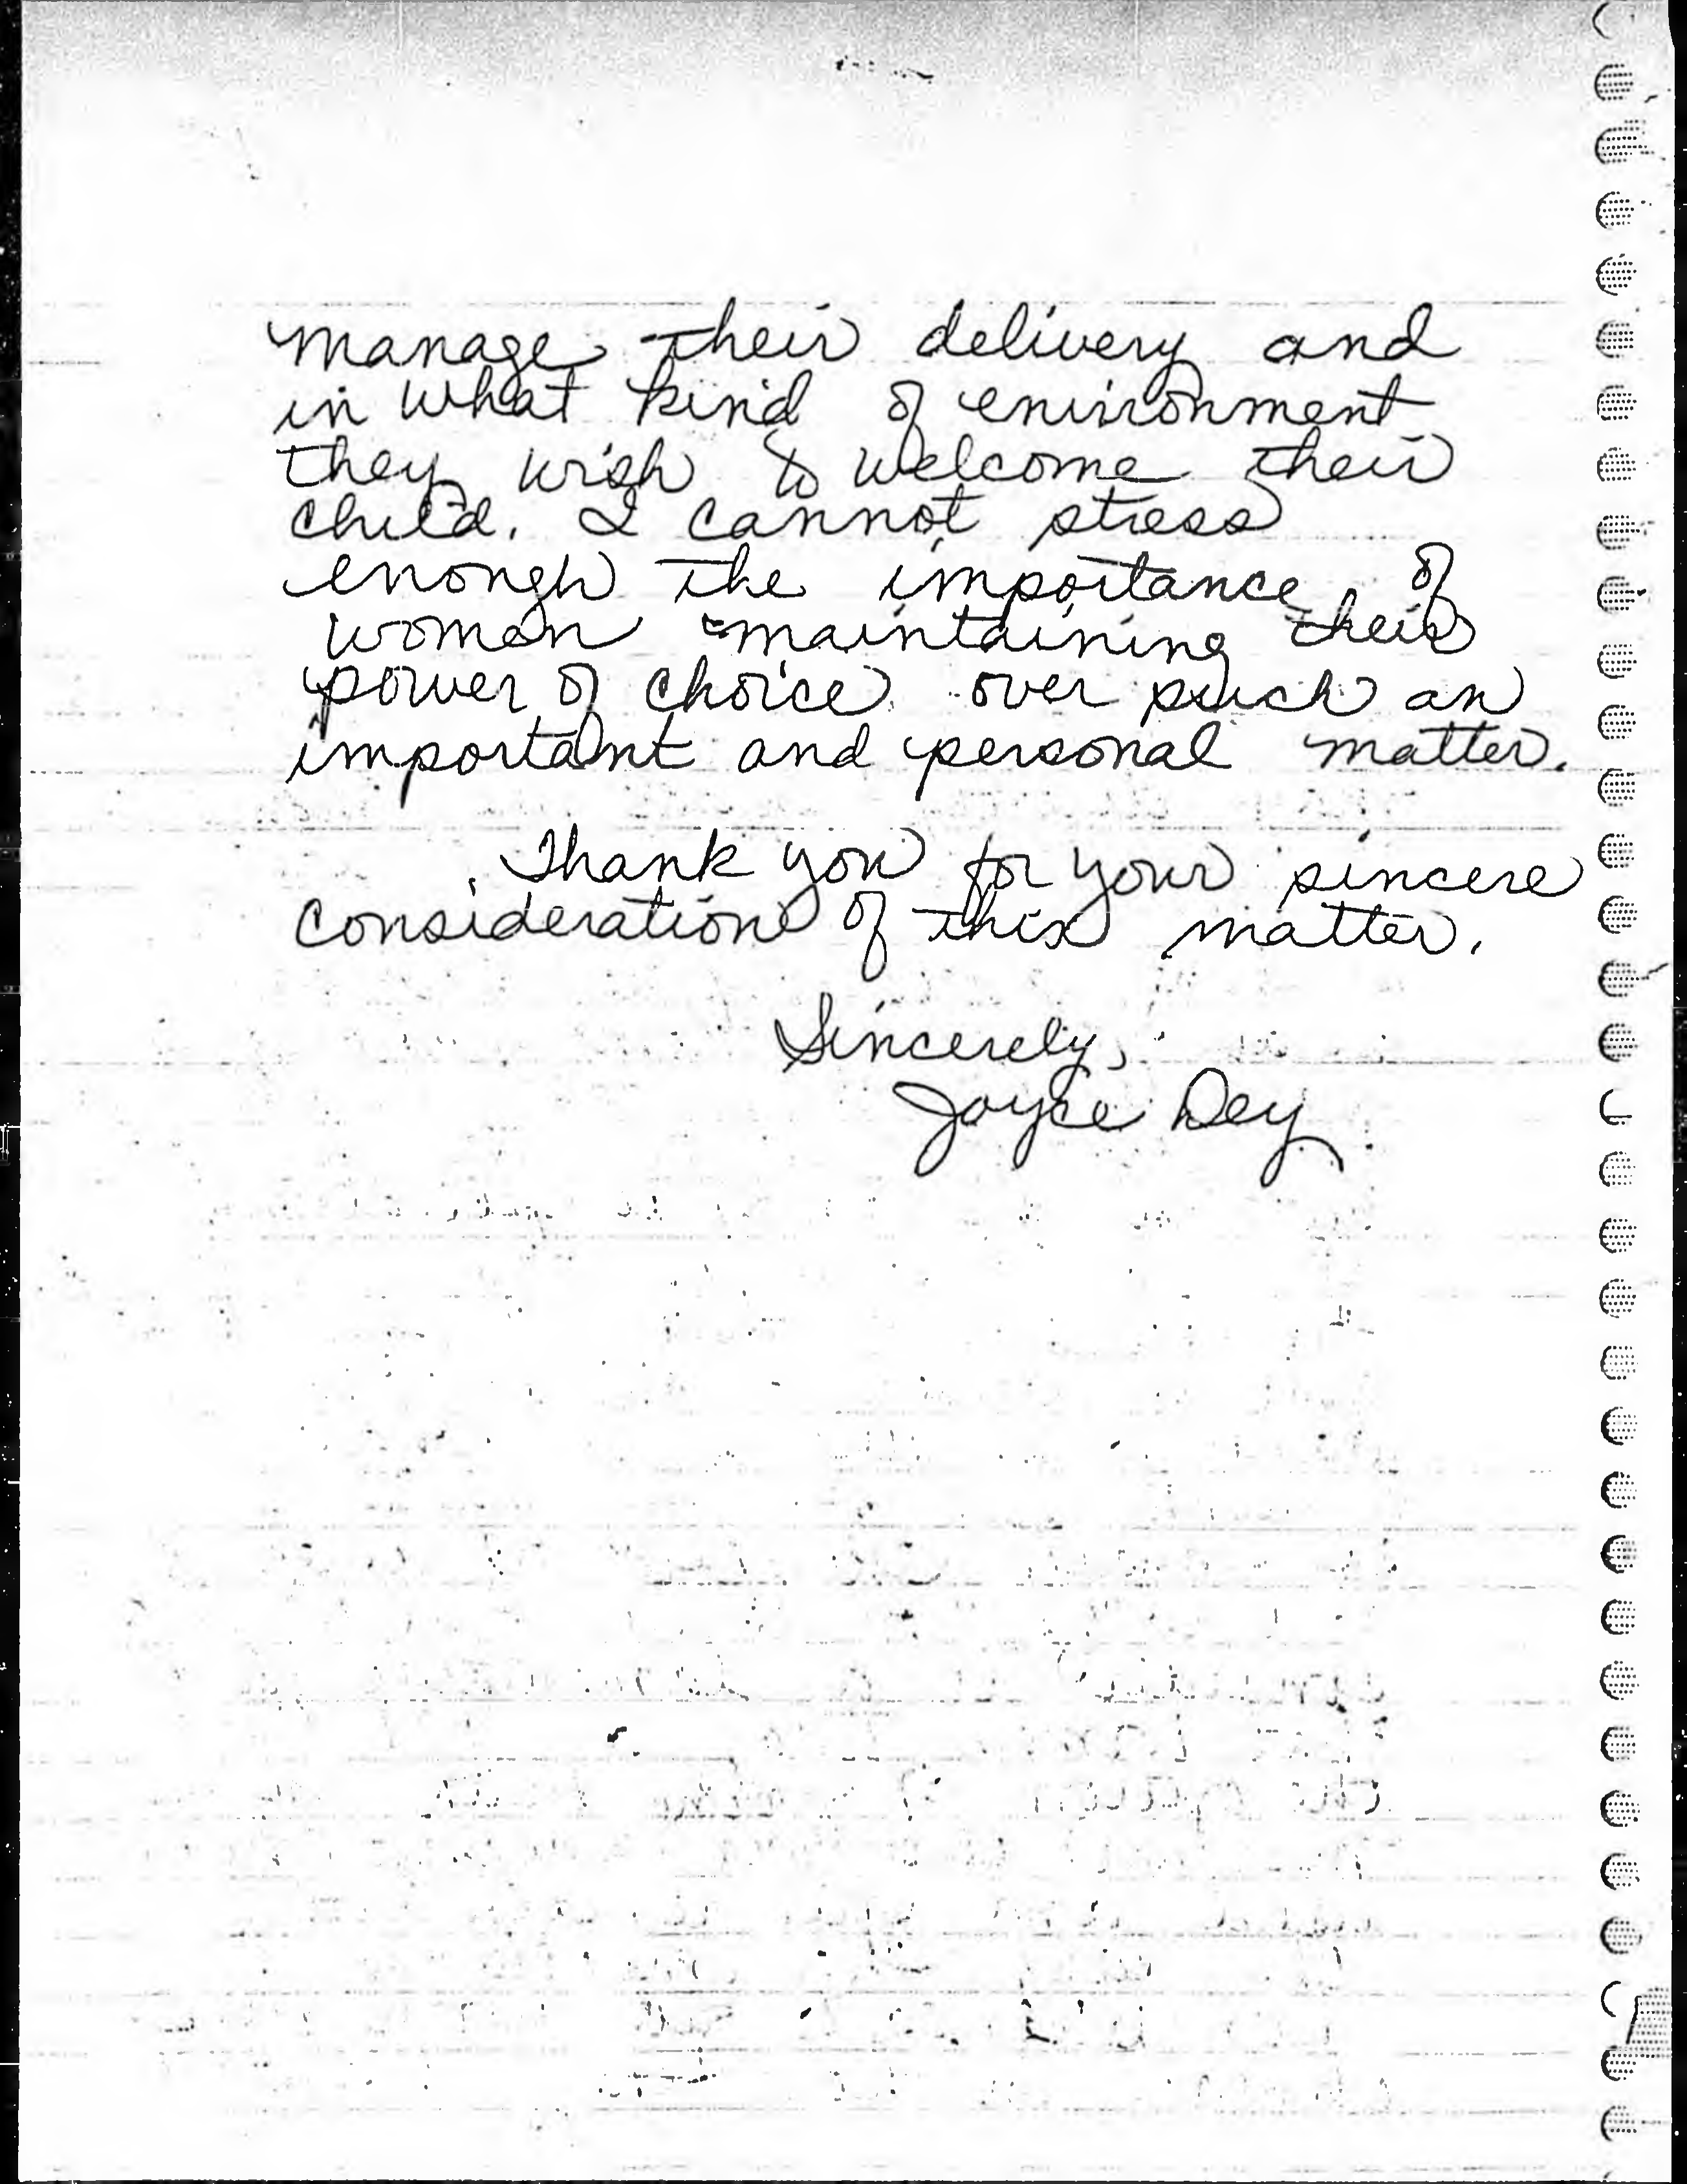 manage their delivery and
in what kind of environment
they wish to welcome their
child. I cannot stress
enough the importance of
women maintaining their
power of choice over such an
important and personal matter.
Thank you for your sincere
consideration of this matter.
Sincerely,
Joyce Dey